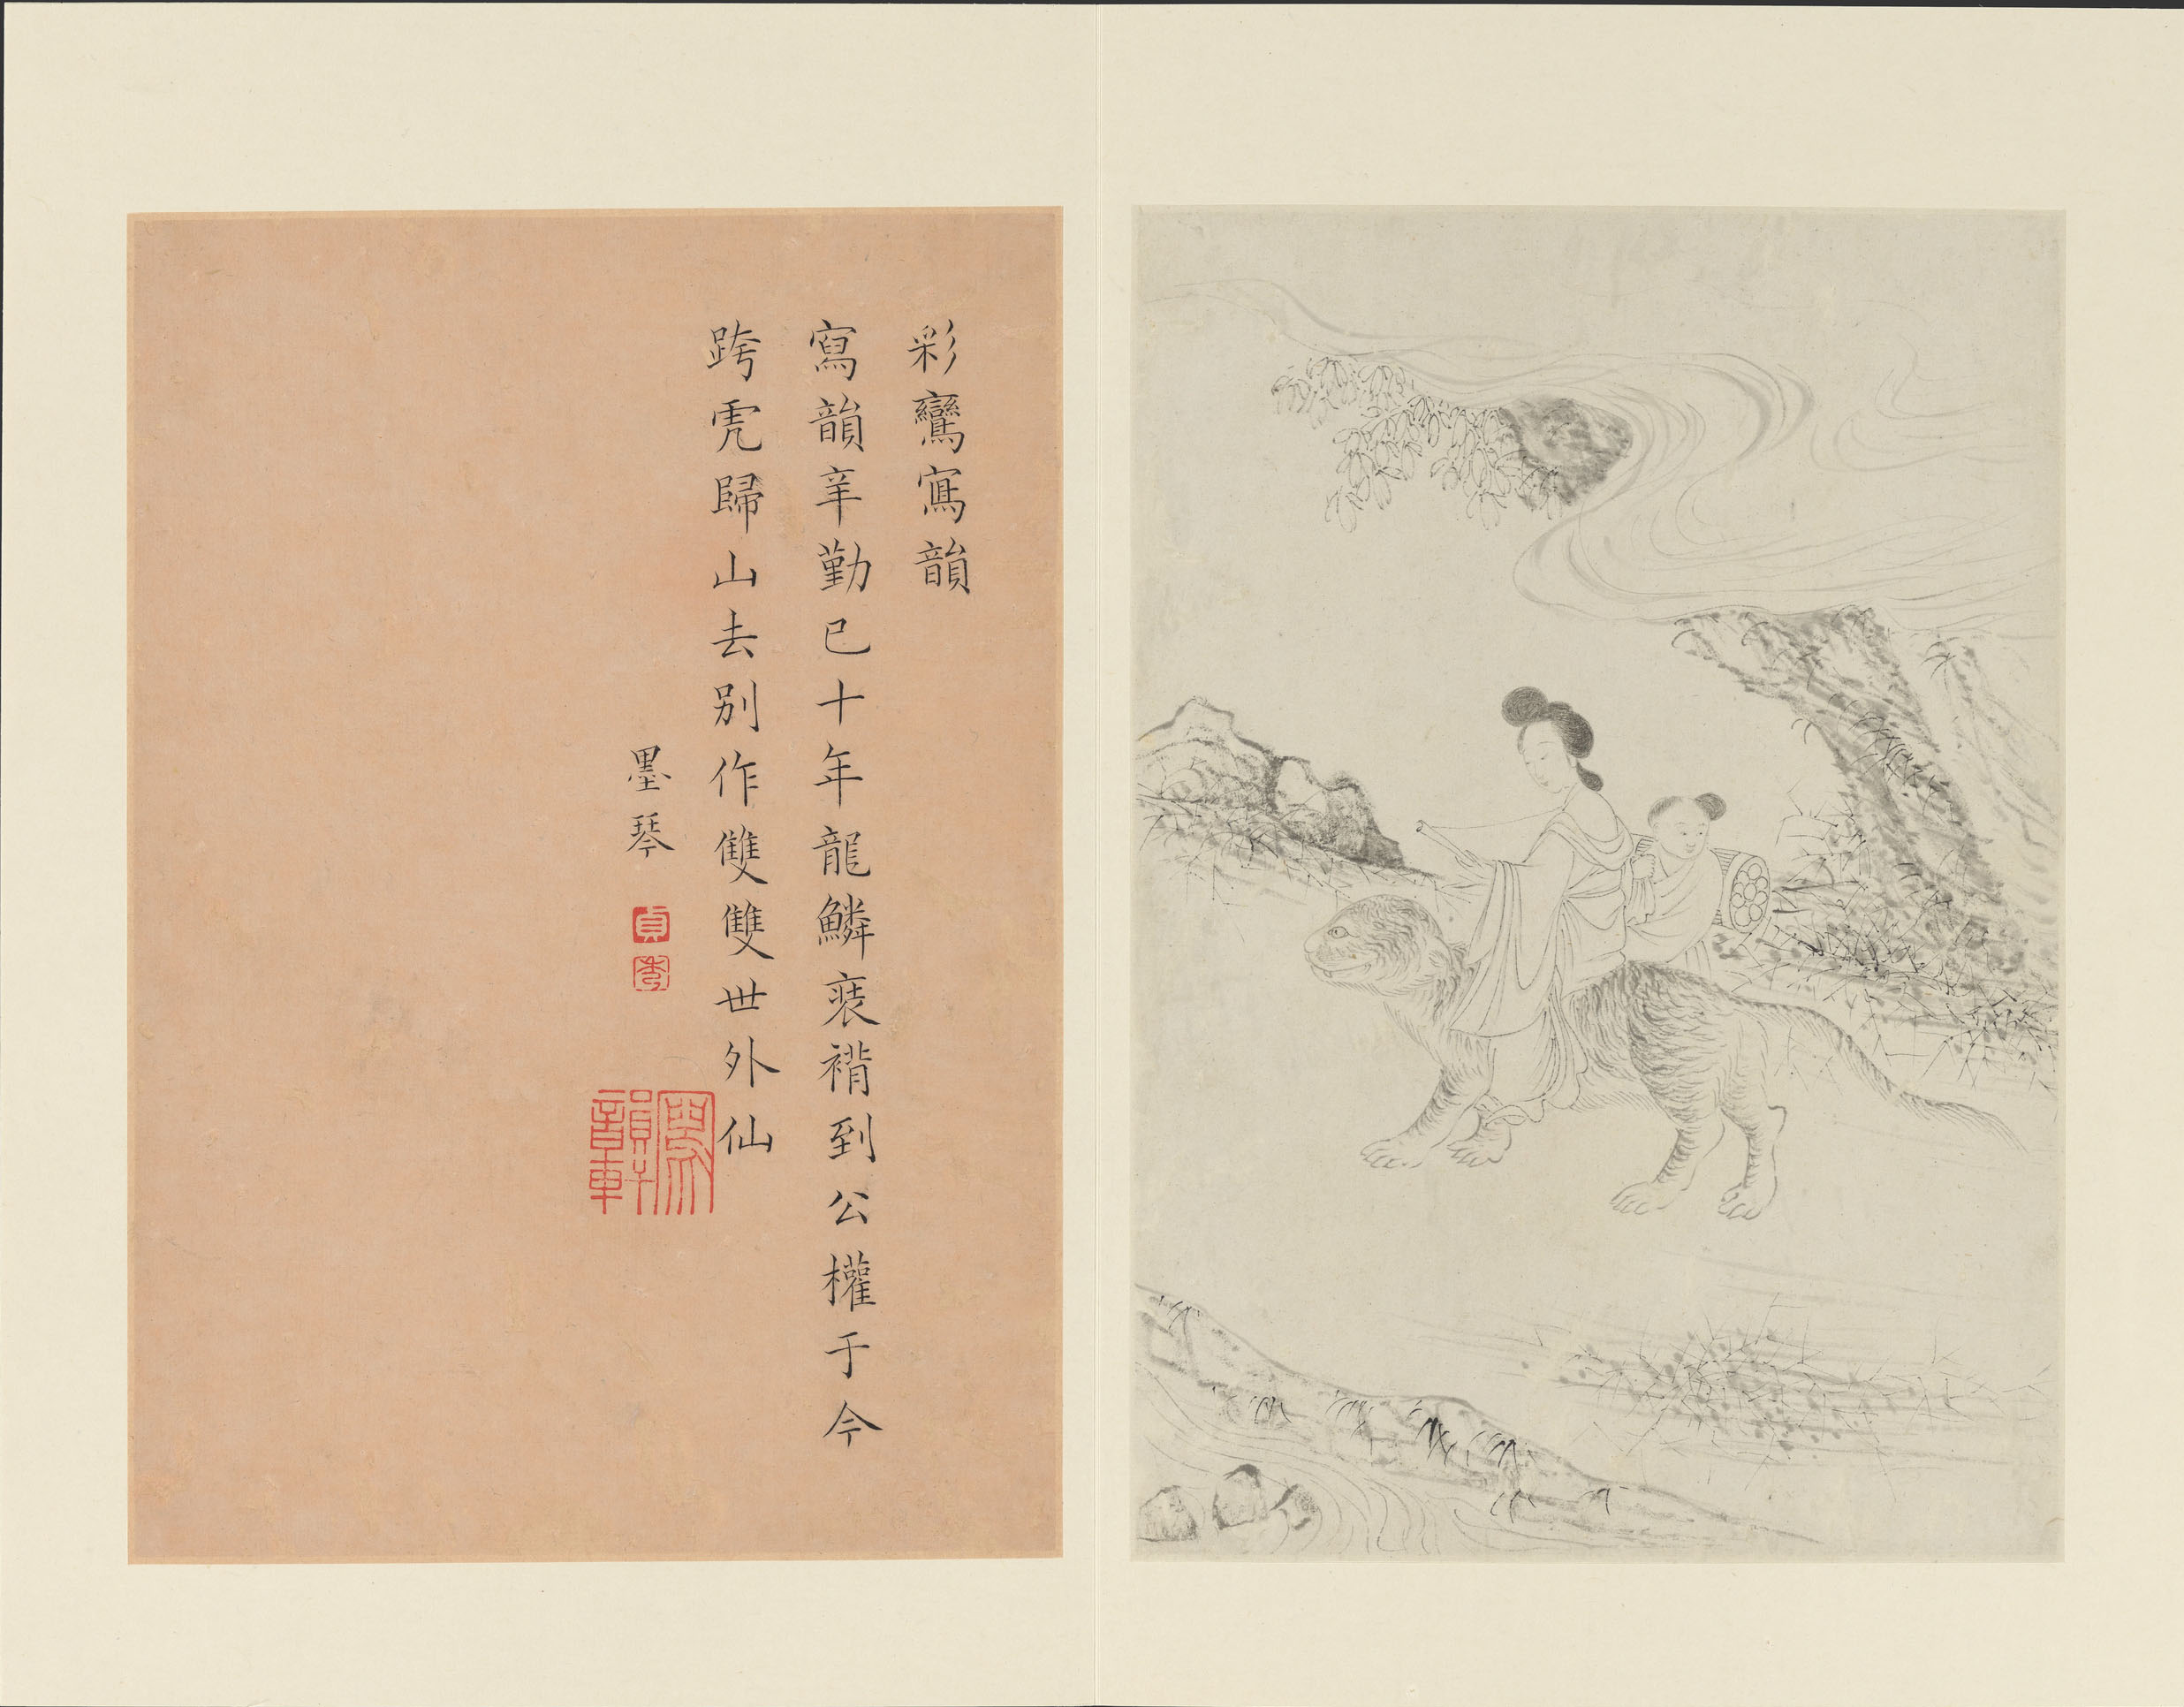 彩鸞寫韻
寫韻辛勤已十年龍鱗褙到公權于今
跨虎歸山去別作雙雙世外仙
墨琴
貞
秀
寫韻軒